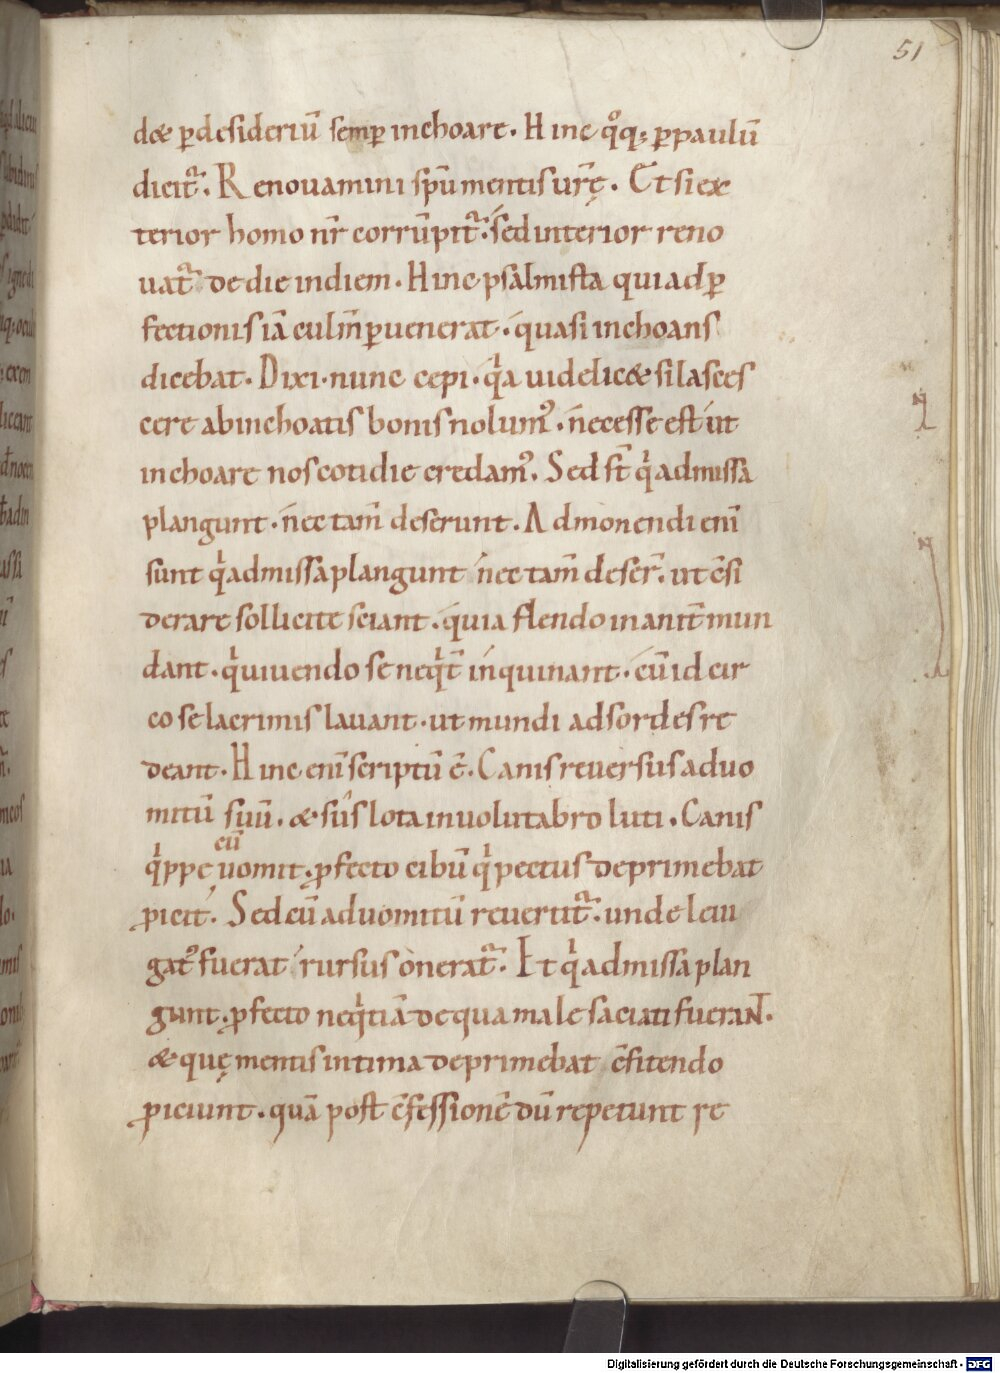 51
d&e ꝑ desideriū semꝑ inchoare. Hinc qͦq; ꝑ paulū
dicit᷑. Renouamini spū mentis urę̄. Et si ex
terior homo nr̄ corrūpit᷑. sed interior reno
uat᷑ de die in diem. Hinc psalmista qui ad ꝑ
fectionis iā culm̄ ꝑuenerat. quasi inchoans
dicebat. Dixi. nunc cepi. qͥa uidelic& si lasces
cere ab inchoatis bonis nolum᷒. necesse est ut
inchoare nos cotidie credam᷒. Sed st̄ qͥ admissa
plangunt. nec tam̄ deserunt. Admonendi enī
sunt qͥ admissa plangunt nec tam̄ deser̄. ut c̄si
derare sollicite sciant. quia flendo inanit̄ mun
dant. qͥ uiuendo se neqͥt̄ inquinant. cū id cir
co se lacrimis lauant. ut mundi ad sordes re
deant. Hinc enī scriptū ē. Canis reuersus ad uo
mitū suū. & sus lota in uolutabro luti. Canis
cū
qͥppe uomit. ꝓfecto cibū qͥ pectus deprimebat
ꝓicit. Sed cū ad uomitū reuertit᷑. unde leui
gat᷒ fuerat rursus onerat᷑. Et qͥ admissa plan
gunt. ꝓfecto neqͥtiā de qua male saciati fueraNT.
& quę mentis intima deprimebat c̄fitendo
ꝓiciunt. quā post c̄fessionē dū repetunt re
Digitalisierung gefördert durch die Deutsche Forschungsgemeinschaft - DFG